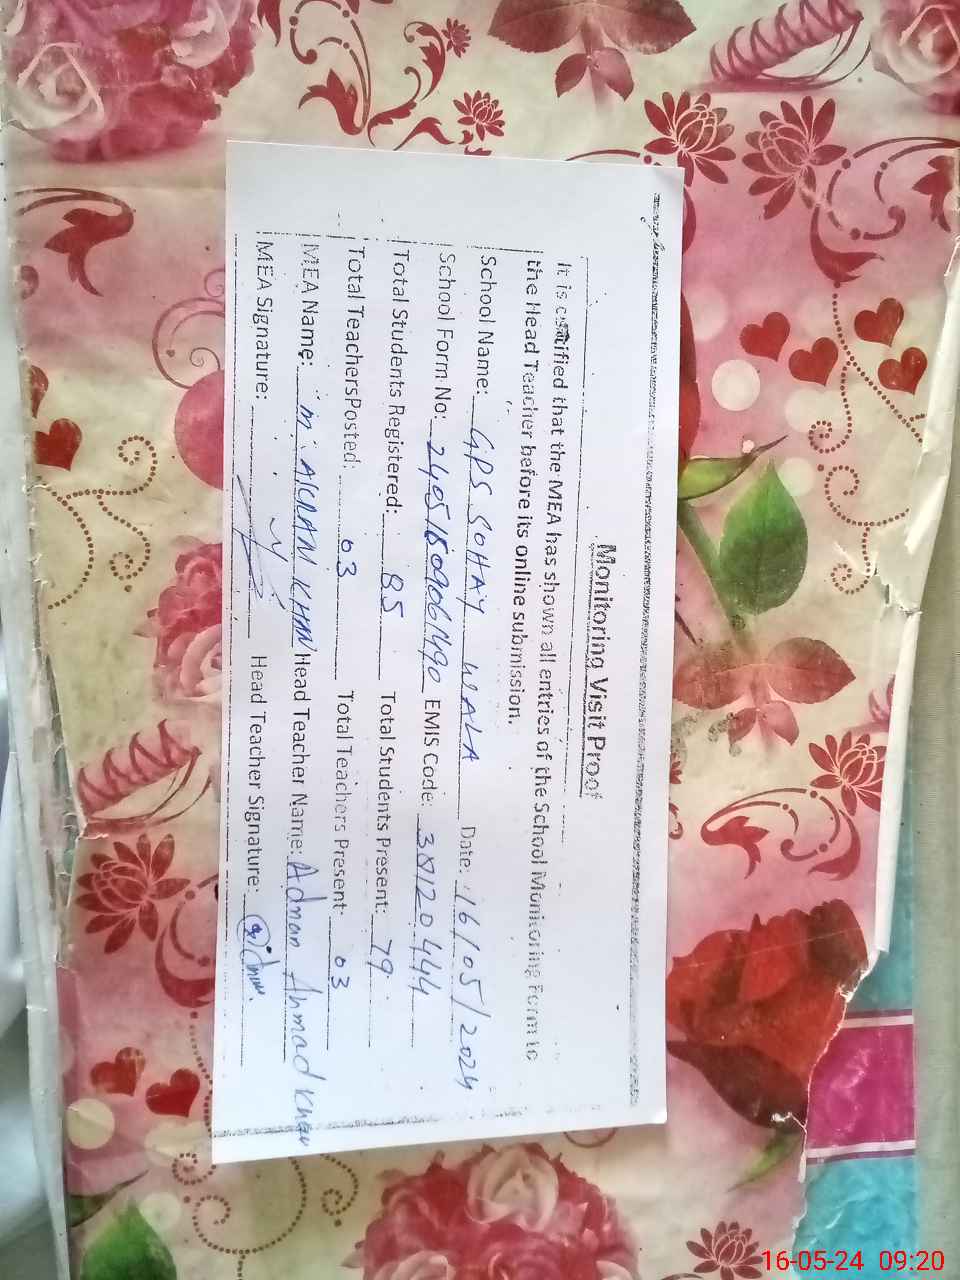 Monitoring Visit Proof
It is certified that the MEA has shown all entries of the School Monitoring Form to
the Head Teacher before its online submission.
School Name: GPS SOHAY WALA Date: 16/05/2024
School Form No: EMIS Code: 38120444
Total Students Registered: 85 Total Students Present: 79
Total TeachersPosted: 03 Total Teachers Present: 03
MEA Name: M. AKRAM KHAN Head Teacher Name: Adnan Ahmad Khan
MEA Signature: Head Teacher Signature:
16-05-24 09:20